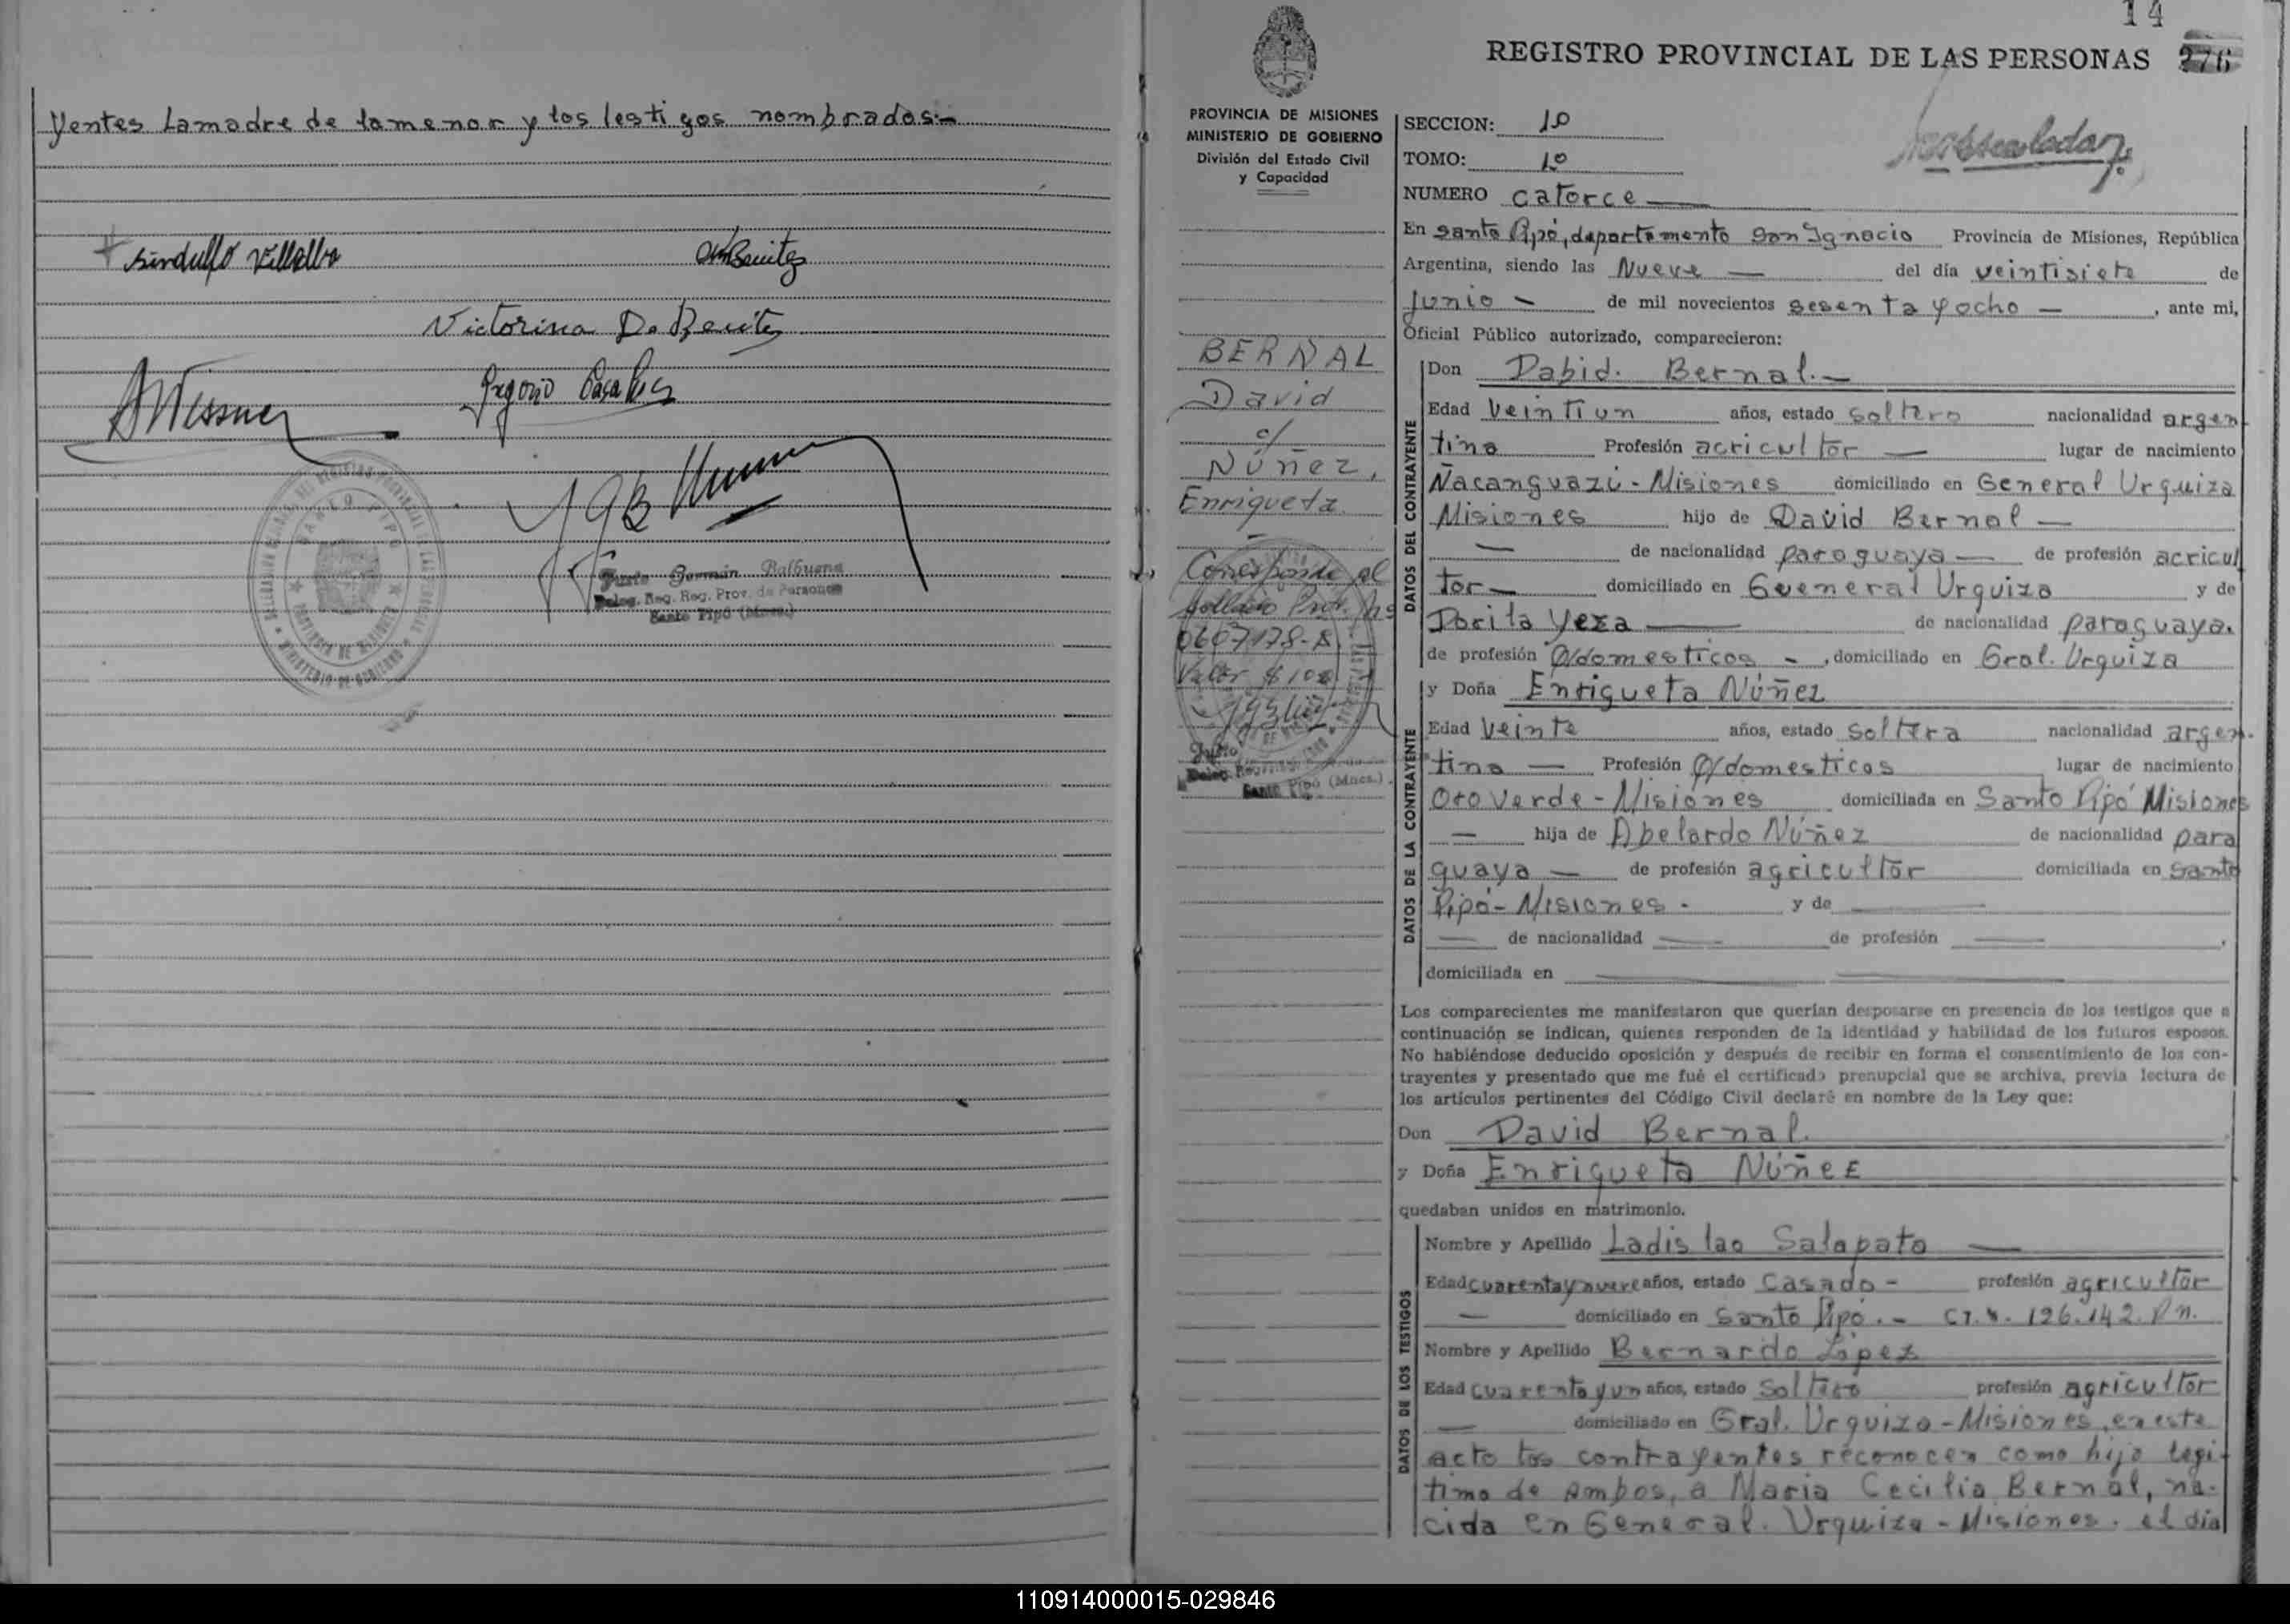 yentes La madre de la menor y los testigos nombrados.-
Sindulfo Villalba
Benitez
Victorina D. de Benitez
AWissner
Gregorio
SANTO PIPO
Justo Germán Balbuena
Deleg. Reg. Prov. de Personas
Santo Pipó (Mnes.)
14
REGISTRO PROVINCIAL DE LAS PERSONAS 276
PROVINCIA DE MISIONES
MINISTERIO DE GOBIERNO
División del Estado Civil
y Capacidad
BERNAL
David
c/
Núñez,
Enriqueta.
Corresponde al
sellado Prov. No
0607178-A
Valor $ 100
Justo
Deleg.
Santo Pipó (Mnes.)
SECCION: 1º
TOMO: 1º
NUMERO catorce
En Santo Pipó, departamento San Ignacio Provincia de Misiones, República
Argentina, siendo las Nueve — del día veintisiete de
Junio - de mil novecientos sesenta y ocho — , ante mi,
Oficial Público autorizado, comparecieron:
DATOS DEL CONTRAYENTE
Don Dabid. Bernal.-
Edad Veintiun años, estado soltero nacionalidad argen
tina Profesión acricultor — lugar de nacimiento
Ñacanguazú - Misiones domiciliado en General Urquiza
Misiones hijo de David Bernal —
— de nacionalidad paraguaya — de profesión acricul
tor — domiciliado en Gueneral Urquiza y de
Dorita Yeza — de nacionalidad paraguaya.
de profesión Q/domesticos - , domiciliado en Gral. Urquiza
DATOS DE LA CONTRAYENTE
y Doña Enriqueta Núñez
Edad Veinte años, estado soltera nacionalidad argen-
tina — Profesión Q/domesticos lugar de nacimiento
Oro Verde - Misiones domiciliada en Santo Pipó Misiones
— hija de Abelardo Núñez de nacionalidad para
guaya — de profesión agricultor domiciliada en Santo
Pipó - Misiones - y de —
— de nacionalidad — de profesión — ,
domiciliada en —
Los comparecientes me manifestaron que querían desposarse en presencia de los testigos que a
continuación se indican, quienes responden de la identidad y habilidad de los futuros esposos.
No habiéndose deducido oposición y después de recibir en forma el consentimiento de los con-
trayentes y presentado que me fué el certificado prenupcial que se archiva, previa lectura de
los artículos pertinentes del Código Civil declaré en nombre de la Ley que:
Don David Bernal.
y Doña Enriqueta Núñez
quedaban unidos en matrimonio.
DATOS DE LOS TESTIGOS
Nombre y Apellido Ladislao Salapata —
Edad cuarenta y nueve años, estado Casado - profesión agricultor
— domiciliado en Santo Pipó.- 126.142.
Nombre y Apellido Bernardo López
Edad cuarenta y un años, estado soltero profesión agricultor
— domiciliado en Gral. Urquiza - Misiones, en este
acto los contrayentes reconocen como hijo legi-
timo de ambos, a Maria Cecilia Bernal, na-
cida en General. Urquiza - Misiones. el dia
110914000015-029846